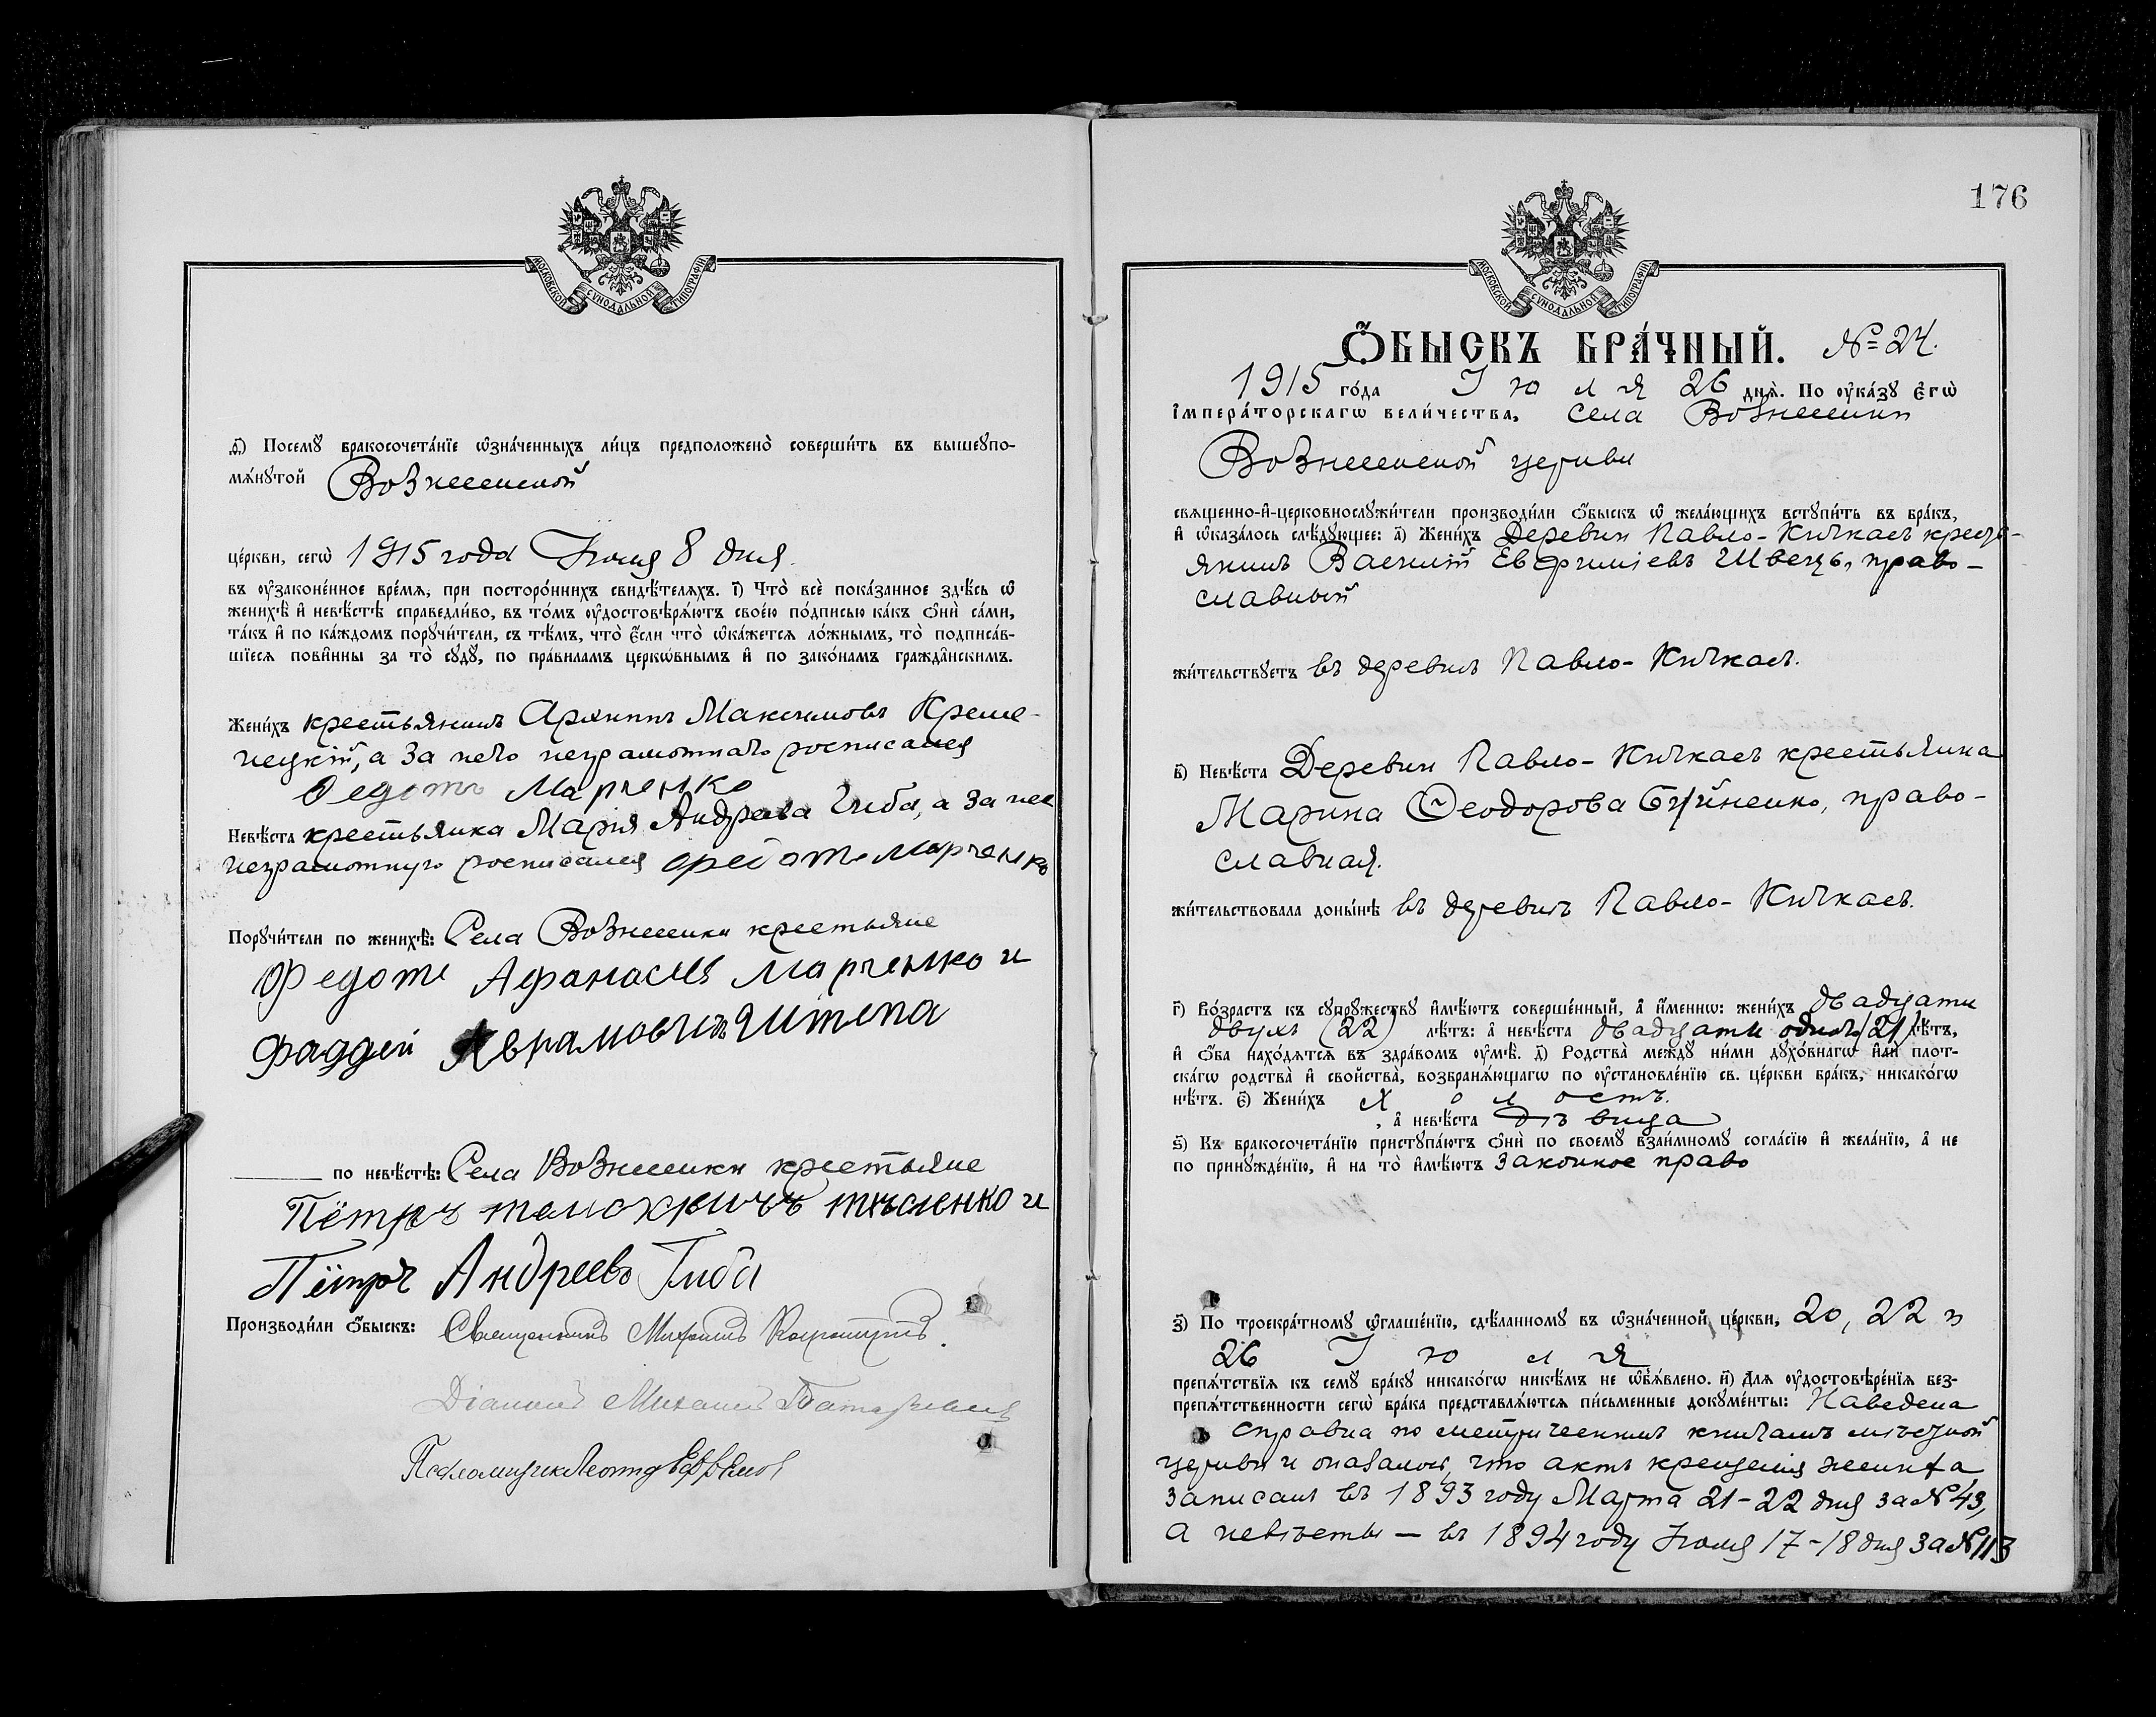 МОСКОВСКОЙ СѴНОДАЛЬНОЙ ТИПОГРАФІИ
д҃і) Посемꙋ̀ бракосочета́нїе ѡ҆зна́ченныхъ ли́цъ предположено̀ соверши́ть въ вышеꙋпо-
мѧ́нꙋтой Вознесенской
це́ркви, сегѡ̀ 1915 года Іюля 8 дня.
въ ᲂу҆зако́ненное вре́мѧ, при посторо́ннихъ свидѣ́телѧхъ. і҃) Что̀ всѐ пока́занное здѣ́сь ѡ҆
женихѣ̀ и҆ невѣ́стѣ справедли́во, въ то́мъ ᲂу҆достовѣрѧ́ютъ свое́ю по́дписью ка́къ ѻ҆нѝ са́ми,
та́къ и҆ по ка́ждомъ порꙋчи́тели, съ тѣ́мъ, что̀ є҆́сли что̀ ѡ҆ка́жетсѧ ло́жнымъ, то̀ подписа́в-
шїесѧ пови́нны за то̀ сꙋдꙋ̀, по пра́виламъ церкѡ́внымъ и҆ по зако́намъ гражда́нскимъ.
Жени́хъ крестьянинъ Архипъ Максимовъ Креме-
нецкій, а за него неграмотнаго росписался
Федотъ Марченко
Невѣ́ста крестьянка Марія Андреева Гиба, а за нее
неграмотную росписался Федотъ Марченко
Порꙋчи́тели по женихѣ̀: Села Вознесенки крестьяне
Федотъ Афанасіевъ Марченко и
Фаддей Аврамовичъ
по невѣ́стѣ: Села Вознесенки крестьяне
Пётръ и
Пётръ Андреевъ Гиба
Производи́ли ѻ҆́быскъ: Священникъ Михаилъ
Діаконъ Михаилъ
Псаломщикъ Леонидъ
176
МОСКОВСКОЙ СѴНОДАЛЬНОЙ ТИПОГРАФІИ
Ѻ҆́БЫСКЪ БРА́ЧНЫЙ. № 24.
1915 го́да Іюля 26 днѧ̀. По ᲂу҆ка́зꙋ є҆гѡ̀
і҆мпера́торскагѡ вели́чества, села Вознесенки
Вознесенской церкви
свѧщенно-и҆-церковнослꙋжи́тели производи́ли ѻ҆́быскъ ѡ҆ жела́ющихъ встꙋпи́ть въ бра́къ,
и҆ ѡ҆каза́лось слѣ́дꙋющее: а҃) Жени́хъ Деревни Павло-Кичкасъ кресть-
янинъ Василій Евфиміевъ Швецъ, право-
славный
жи́тельствꙋетъ въ деревнѣ Павло-Кичкасъ.
в҃) Невѣ́ста Деревни Павло-Кичкасъ крестьянка
Марина Ѳеодорова, право-
славная.
жи́тельствовала доны́нѣ въ деревнѣ Павло-Кичкасъ.
г҃) Во́зрастъ къ сꙋпрꙋ́жествꙋ и҆мѣ́ютъ соверше́нный, а҆ и҆́меннѡ: жени́хъ двадцати
двухъ (22) лѣ́тъ: а҆ невѣ́ста двадцати одного (21) лѣ́тъ,
и҆ ѻ҆́ба нахо́дѧтсѧ въ здра́вомъ ᲂу҆мѣ̀. д҃) Родства̀ междꙋ̀ ни́ми дꙋхо́внагѡ и҆лѝ плот-
ска́гѡ родства̀ и҆ сво́йства̀, возбранѧ́ющагѡ по ᲂу҆становле́нїю св. це́ркви бра́къ, никако́гѡ
нѣ́тъ. є҃) Жени́хъ холостъ.
, а҆ невѣ́ста дѣвица
ѕ҃) Къ бракосочета́нїю пристꙋпа́ютъ ѻ҆нѝ по своемꙋ̀ взаи́мномꙋ согла́сїю и҆ жела́нїю, а҆ не
по принꙋжде́нїю, и҆ на то̀ и҆мѣ́ютъ законное право
з҃) По троекра́тномꙋ ѡ҆глаше́нїю, сдѣ́ланномꙋ въ ѡ҆зна́ченной це́ркви, 20, 22 и
26 Іюля
препѧ́тствїѧ къ семꙋ̀ бра́кꙋ никако́гѡ никѣ́мъ не ѡ҆бѧ́влено. и҃) Длѧ ᲂу҆достовѣре́нїѧ без-
препѧ́тственности сегѡ̀ бра́ка представлѧ́ютсѧ пи́сьменные докꙋме́нты: Наведена
справка по метрическимъ книгамъ мѣстной
церкви и оказалось, что актъ крещенія жениха
записанъ въ 1893 году Марта 21-22 дня за № 43,
а невѣсты — въ 1894 году Іюля 17-18 дня за № 113